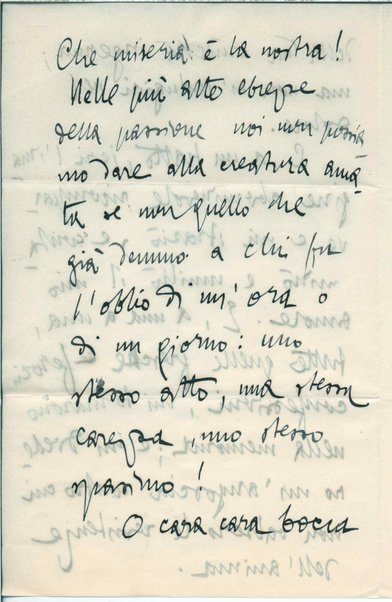 Che miseria è la nostra!
Nelle più alte ebrezze
della passione noi non possia
mo dare alla creatura ama
ta se non quello che
già demmo a chi fu
l'oblio di un'ora o
di un giorno: uno
stesso atto, una stessa
carezza, uno stesso
spasimo!
O cara cara bocca